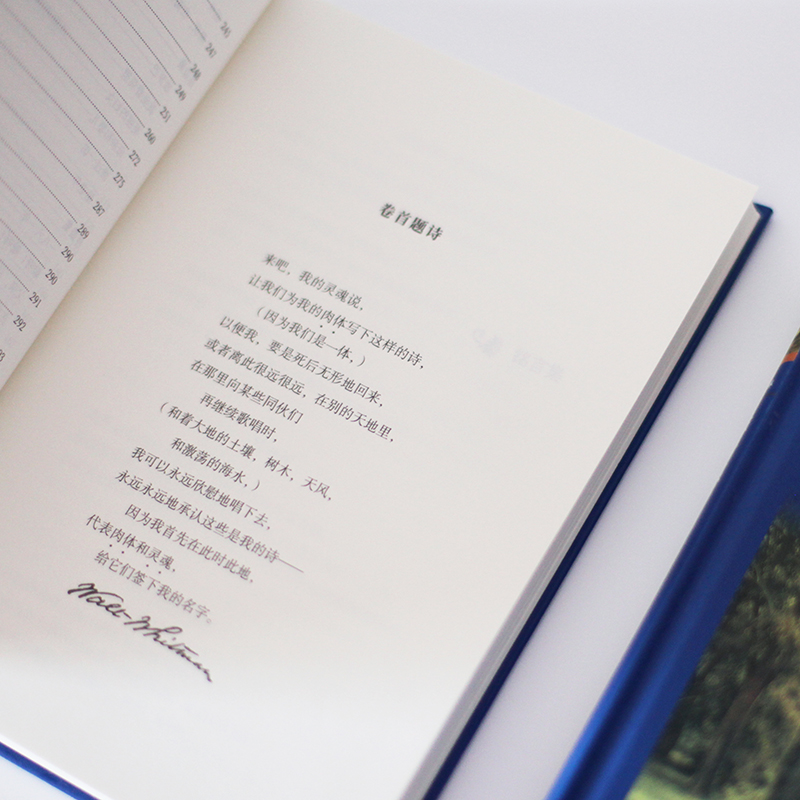 245
247
248
249
251
260
272
275
287
289
290
290
291
292
293
卷首题诗
来吧，我的灵魂说，
让我们为我的肉体写下这样的诗，
（因为我们是一体，）
以便我，要是死后无形地回来，
或者离此很远很远，在别的天地里，
在那里向某些同伙们
再继续歌唱时，
（和着大地的土壤，树木，天风，
和激荡的海水，）
我可以永远欣慰地唱下去，
永远永远地承认这些是我的诗——
因为我首先在此时此地，
代表肉体和灵魂，
给它们签下我的名字。
Walt Whitman